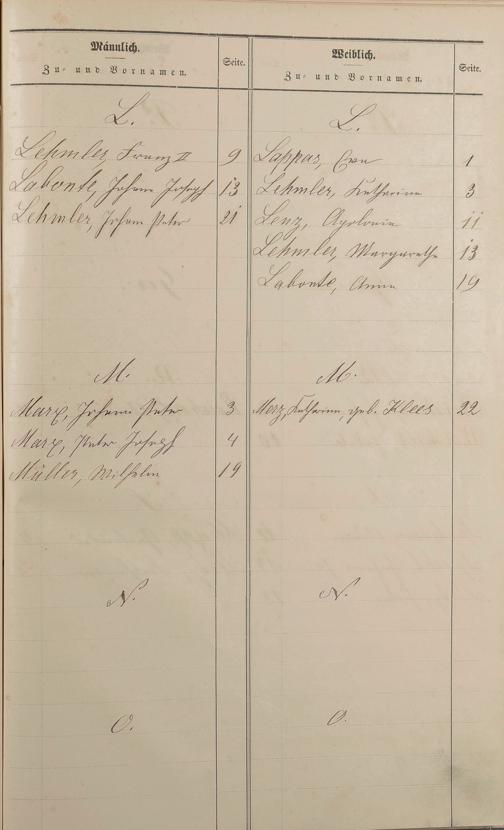 Männlich.
Zu- und Vornamen.
Seite.
L.
Lehmler, Franz II 9
Labonte, Johann Joseph 13
Lehmler, Johann Peter 21
M.
Marx, Johann Peter 3
Marx, Peter Joseph 4
Müller, Wilhelm 19
N.
O.
Weiblich.
Zu- und Vornamen.
Seite.
L.
Lappas, Eva 1
Lehmler, Katharina 3
Lenz, Apolonia 11
Lehmler, Margaretha 13
Labonte, Anna 19
M.
Merz, Katharina, geb. Klees 22
N.
O.